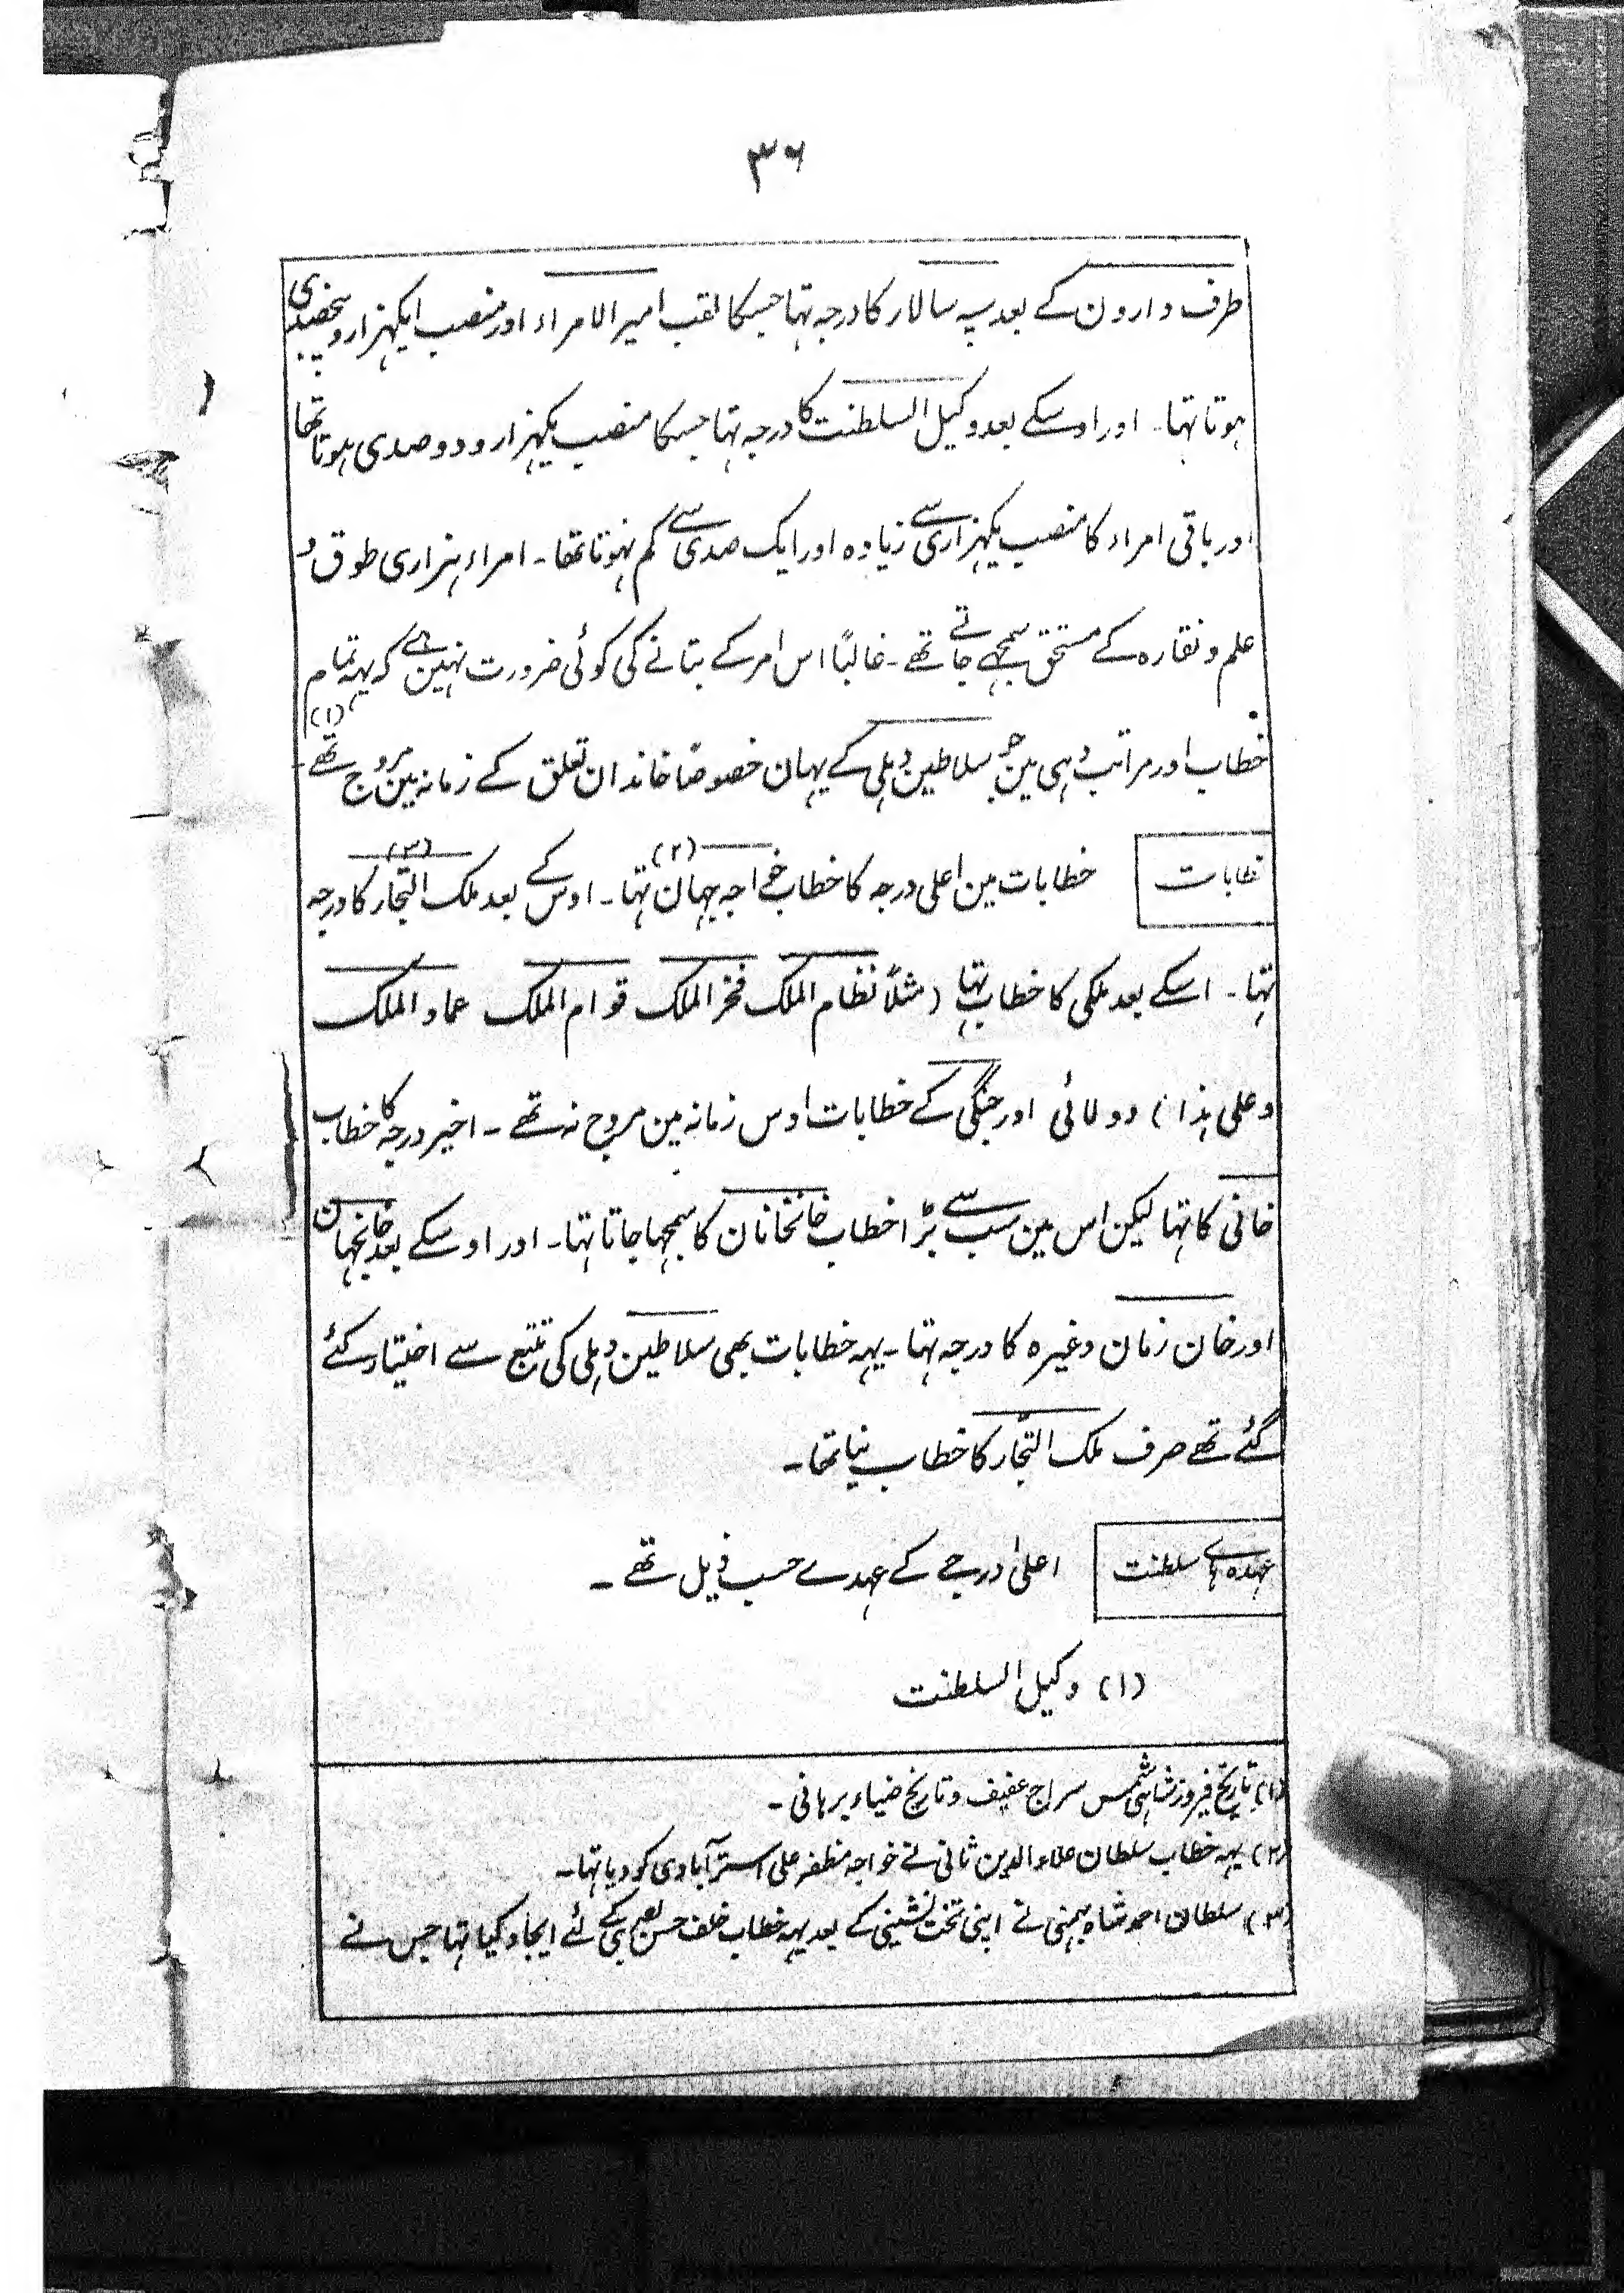 ۳۶
طرف دارون کے بعد سپہ سالار کا درجہ تہا جسکا لقب امیر الامراء اور منصب ایکہزار و پنجصدی
ہوتا تہا۔ اور اوسکے بعد وکیل السلطنت کا درجہ تہا جسکا منصب یکہزار و دو صدی ہوتا تھا
اور باقی امراء کا منصب یکہزاری سے زیادہ اور ایک صدی سے کم نہوتا تھا۔ امراء ہزاری طوق و
علم و نقارہ کے مستحق سمجھے جاتے تھے۔ غالبًا اس امر کے بتانے کی کوئی ضرورت نہین ہے کہ یہہ تمام
خطاب اور مراتب وہی ہین جو سلاطین دہلی کے یہان خصوصًا خاندان تغلق کے زمانہ مین مروج تھے۔ (۱)
خطابات
خطابات مین اعلی درجہ کا خطاب خواجہ جہان (۲) تہا۔ اوس کے بعد ملک التجار (۳) کا درجہ
تہا۔ اسکے بعد ملکی کا خطاب تہا (مثلًا نظام الملک فخر الملک قوام الملک عماد الملک
و علی ہذا) دولائی اور جنگی کے خطابات اوس زمانہ مین مروج نہ تھے۔ اخیر درجہ کا خطاب
خانی کا تہا لیکن اس مین سب سے بڑا خطاب خانخانان کا سمجہا جاتا تہا۔ اور اوسکے بعد خانجہان
اور خان زمان وغیرہ کا درجہ تہا۔ یہہ خطابات بھی سلاطین دہلی کی تتبع سے اختیار کئے
گئے تھے صرف ملک التجّار کا خطاب نیا تھا۔
عہدہ ہاے سلطنت
اعلیٰ درجے کے عہدے حسب ذیل تھے۔
(۱) وکیل السلطنت
(۱) تاریخ فیروز شاہی شمس سراج عفیف و تاریخ ضیاء برہانی۔
(۲) یہہ خطاب سلطان علاء الدین ثانی نے خواجہ مظفر علی استرآبادی کو دیا تہا۔
(۳) سلطان احمد شاہ بہمنی نے اپنی تخت نشینی کے بعد یہہ خطاب خلف حسن بصری کے لئے ایجاد کیا تہا جس نے